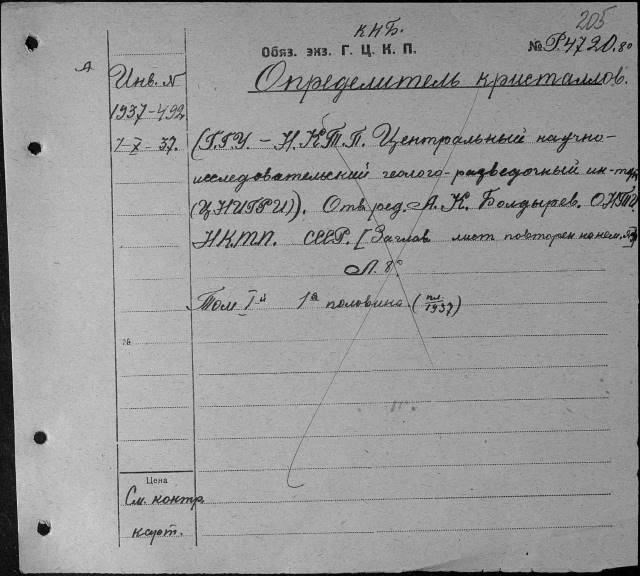 205
К Н Б.
Обяз. экз. Г. Ц. К. П.
№ Р4720.80
А
Инв. N
1937-492
7-X-37.
Определитель кристаллов.
(ГГУ – Н.К.Т.П. Центральный научно-
исследовательский геолого-разведочный ин-т
(ЦНИГРИ)). Отв. ред. А. К. Болдырев. ОНТИ
НКТП. СССР. [Заглав лист повторен на нем.
Л. 8°
Том I й 1 а половина. (
1937)
№
Цена
См. контр.